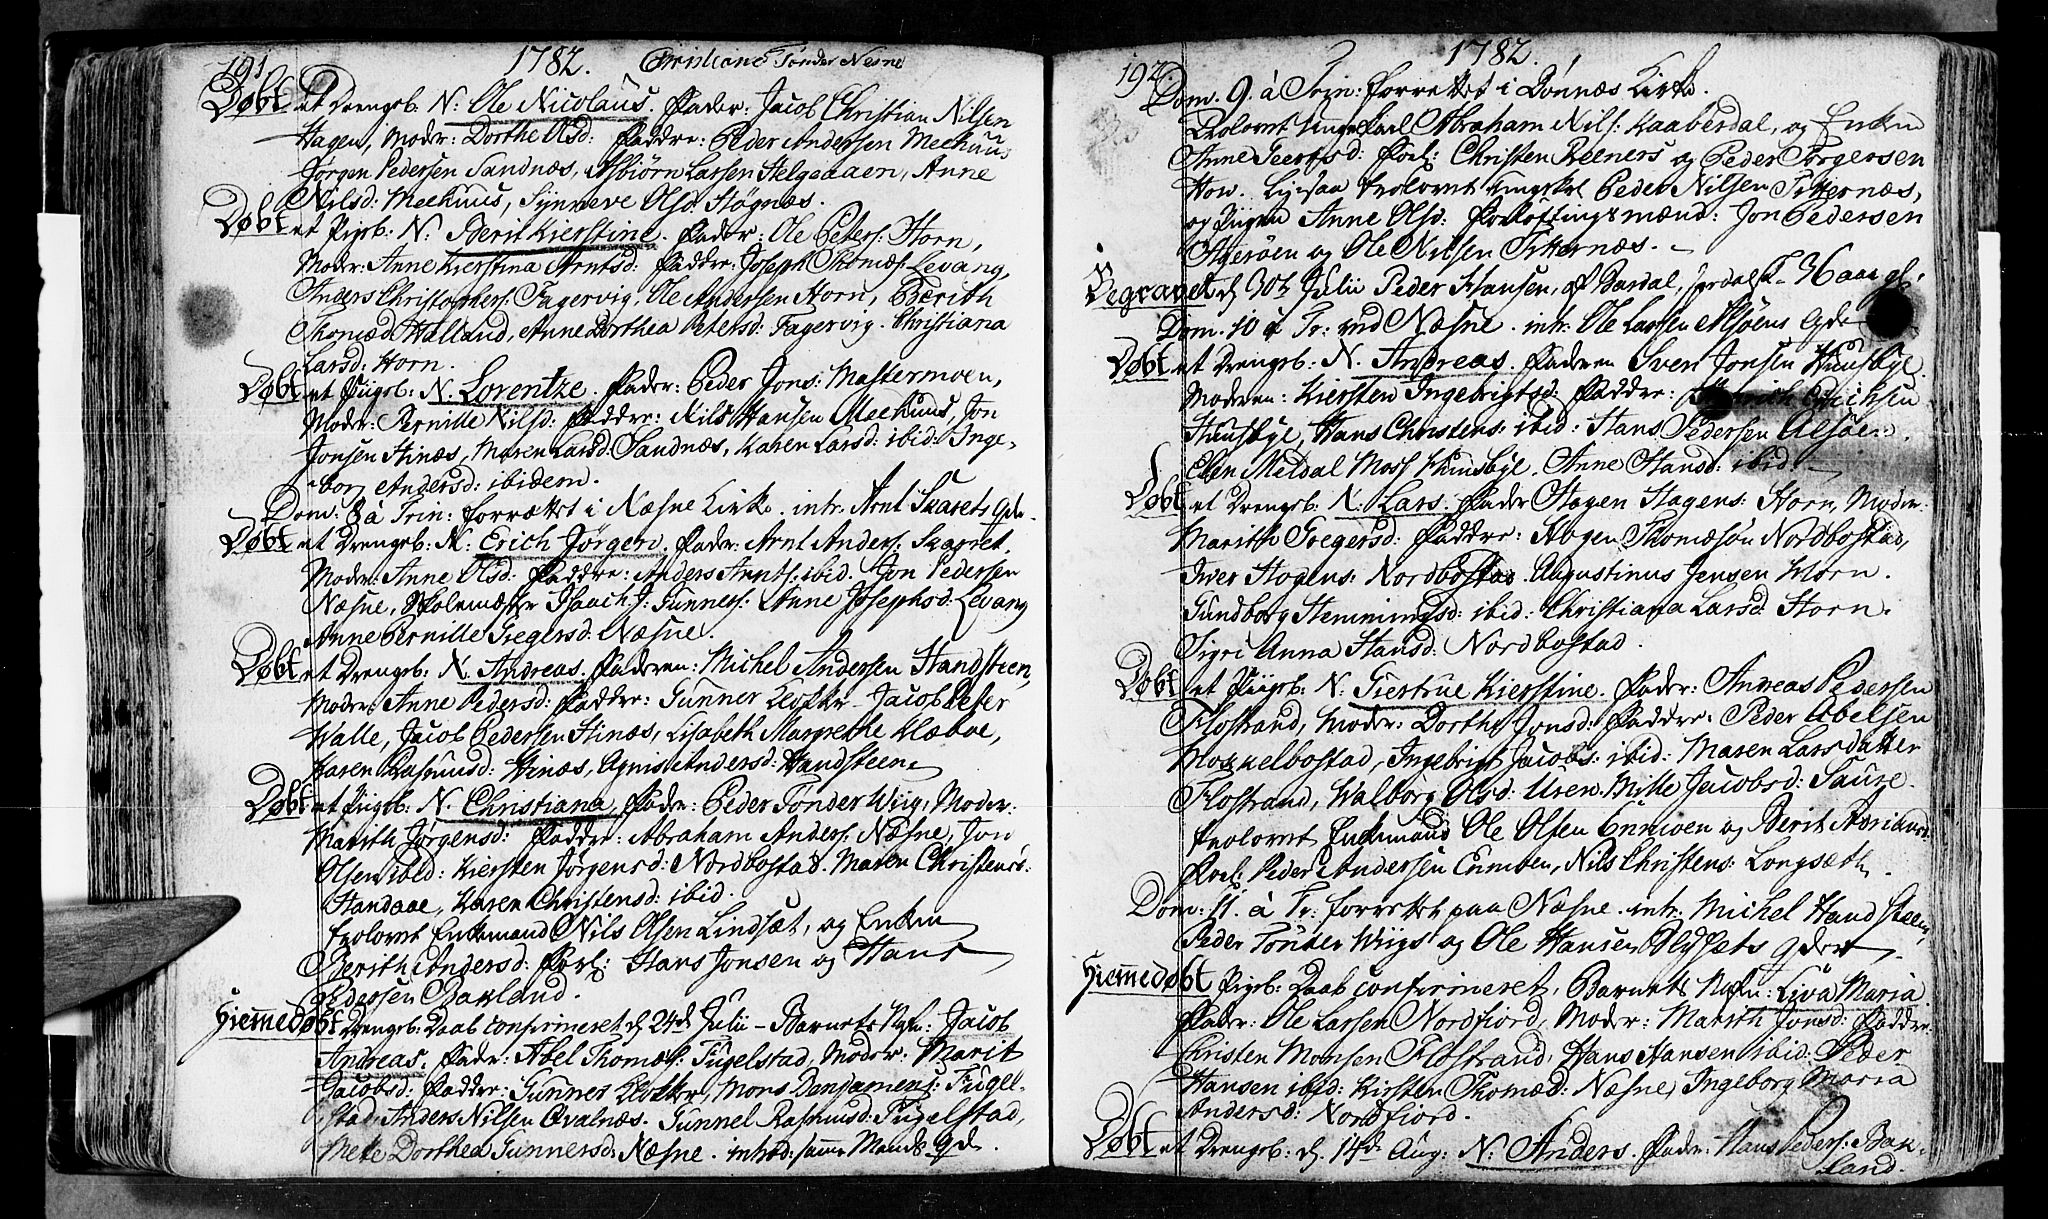 191
1782. Christiane Tønder Nesne
Døbt et Drengeb: N: Ole Nicolaus. Fader: Jacob Christian Nilsen
Hagen, Moder: Dorthe Olsd: Faddre: Peder Andersen Meehuus
Jørgen Pedersen Sandnæs, Asbiørn Larsen Helgaaen, Anne
Nilsd: Meehuus, Synneve Olsd: Høgnæs.
Døbt et Pigeb: N: Berit Kierstine. Fader: Ole Peters: Horn,
Moder: Anne Kierstina Arntsd: Faddre: Joseph Thomæs: Levang,
Anders Christophers: Fagervig, Ole Andersen Horn, Berith
Thomæd: Walland, Anne Dorthea Petersd: Fagervig. Christiana
Larsd: Horn.
Døbt et Piigeb: N. Lorentze. Fader: Peder Jons: Mastermoen,
Moder: Pernille Nilsd: Faddre: Nils Hansen Meehuus, Jon
Jonsen Hinæs, Maren Larsd: Sandnæs, Karen Larsd: ibid: Inge-
borg Andersd: ibidem.
Dom: 8 à Trin: forrettet i Næsne Kirke. intr. Arnt Skarets Qde.
Døbt et Drengeb: N. Erich Jørgen. Fader: Arnt Anders: Skarret.
Moder: Anne Olsd: Faddre: Anders Arnts: ibid. Jon Pedersen
Næsne, Skolemester Isaach J: Gunners: Anne Josephsd: Levang
Anne Pernille Gregersd: Næsne.
Døbt et Drengeb: N. Andreas. Faderen: Michel Andersen Handsteen,
Moder: Anne Pedersd: Faddre: Gunner Klokker, Jacob Peter
Walle, Jacob Pedersen Hinæs, Lisabeth Margrethe Klæboe,
Karen Rasmusd: Hinæs, Agnis Andersd: Handsteen.
Døbt et Piigeb: N. Christiana. Fader: Peder Tønder Wiig, Moder:
Marith Jørgensd: Faddre: Abraham Anders: Næsne, Jon
Olsen ibid: Kiersten Jørgensd: Nordbostad. Maren Christensd:
Handaae, Karen Christensd: ibid.
Trolovet Enkemand Nils Olsen Lindsæt, og Enken
Berith Andersd: Forl: Hans Jonsen og Hans
Pedersen Bakland.
Hiemmedøbt Drengeb: Daab confirmeret d 24de Julii - Barnets Nafn: Jacob
Andreas. Fader: Abel Thomæs: Fugelstad, Moder: Marit
Jacobsd: Faddre: Gunner Klokker, Mons Danjamens: Fugel-
stad, Anders Nilsen Qvalnæs. Gunnel Rasmusd: Fugelstad,
Mete Dorthea Gunnersd: Næsne. introd: samme Mands Qde.
192.
1782.
Dom. 9. à Trin: forrettet i Dønnæs Kirke.
Trolovet Ungekarl Abraham Nils: Kaaberdal, og Enken
Anne Geertsd: Forl: Christen Reeners og Peder Jørgensen
How. Ligesaa trolovet Ungekarl Peder Nilsen Titternæs,
og Pigen Anne Olsd: Forløftningsmænd: Jon Pedersen
Ageröen og Ole Nilsen Titternæs.
Begravet d 30te Julii Peder Hansen, af Bardal, 36 aar gl:
Dom. 10 à Tr: ved Næsne. intr: Ole Larsen Alsöens Qde
Døbt et Drengeb: N. Andreas. Faderen Sven Jonsen Huusbye.
Moderen: Kiersten Ingebrigtsd: Faddre: Erichsen
Huusbye, Hans Christens: ibid: Hans Pedersen Alsöen.
Elen Meldal Moss Huusbye. Anne Hansd: ibid:
Døbt et Drengeb: N. Lars. Fader Hagen Hagens: Horn, Moder:
Marith Gregersd: Faddre: Hagen Thomæsön Nordbostad,
Iver Hagens: Nordbostad. Augustinus Jensen Horn.
Gundborg Hemmingsd: ibid: Christiana Larsd: Horn.
Sigri Anna Hansd: Nordbostad.
Døbt et Piigeb: N: Giertrue Kierstine. Fader: Andreas Pedersen
Flostrand, Moder: Dorthe Jonsd: Faddre: Peder Abelsen
Moskelbostad, Ingebrigt Jacobs: ibid: Maren Larsdatter
Flostrand, Walborg Olsd: Uren. Mille Jacobsd: Saure.
Trolovet Enkemand Ole Olsen Enmoen og Berit Adriansd:
Forl: Peder Andersen Enmoen, Nils Christens: Longsæth.
Dom: 11. à Tr: forrettet paa Næsne. intr: Michel Handsteen,
Peder Tönder Wiigs og Ole Hansen Qder.
Hiemmedøbt Pigeb: Daab confirmeret, Barnets Nafn: Liva Maria
Fader: Ole Larsen Nordfiord, Moder: Marith Jonsd: Faddre:
Christen Monsen Flostrand, Hans Hansen ibid: Peder
Hansen ibid: Kirsten Thomæd: Næsne, Ingeborg Maria
Andersd: Nordfiord.
Døbt et Drengeb: d. 14de Aug: N: Anders. Fader: Hans Peders: Bak-
land.